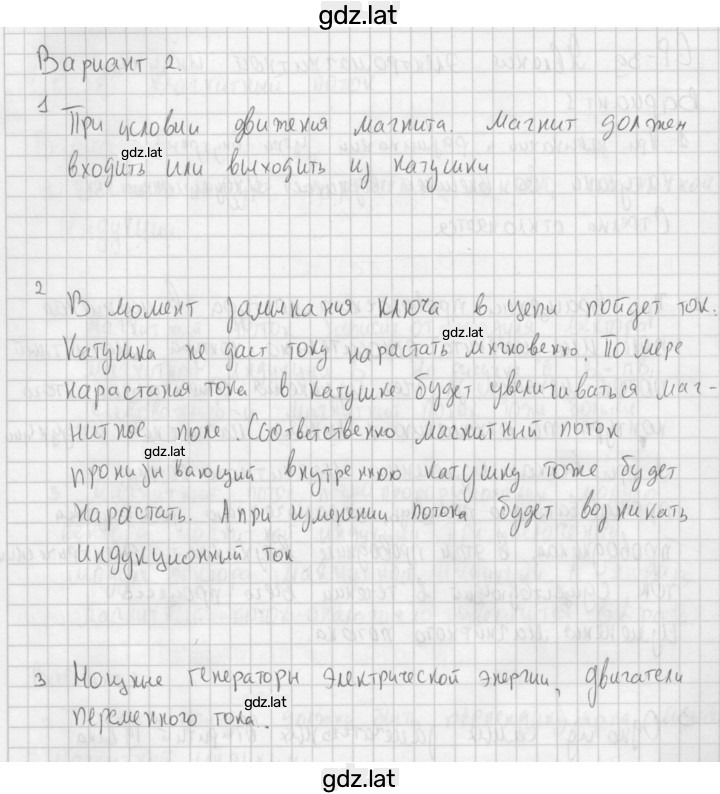 gdz.lat
Вариант 2.
1 При условии движения магнита. Магнит должен
gdz.lat
входить или выходить из катушки
2 В момент замыкания ключа в цепи пойдет ток.
gdz.lat
Катушка не даст току нарастать мгновенно. По мере
нарастания тока в катушке будет увеличиваться маг-
нитное поле. Соответственно магнитный поток
gdz.lat
пронизывающий внутреннюю катушку тоже будет
нарастать. А при изменении потока будет возникать
индукционный ток
3 Мощные генераторы электрической энергии, двигатели
gdz.lat
переменного тока.
gdz.lat